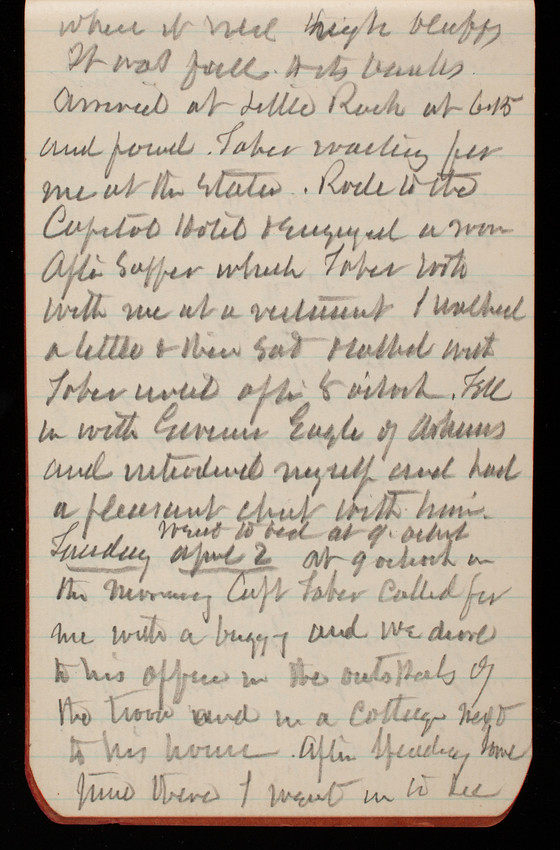 when it was high bluffs
It was full to its banks.
Arrived at Little Rock at 6.15
and found Taber waiting for
me at the Station. Rode to the
Capitol Hotel & engaged a room
After Supper which Taber took
with me at a restaurant I walked
a little & then sat & talked with
Taber until after 8 o'clock. Fell
in with Governor Eagle of Arkansas
and introduced myself and had
a pleasant chat with him.
Went to bed at 9 o'clock
Tuesday April 2 at 9 o'clock in
the morning Capt Taber called for
me with a buggy and we drove
to his office in the outskirts of
the town and in a cottage next
to his house. After spending some
time there I went in to see